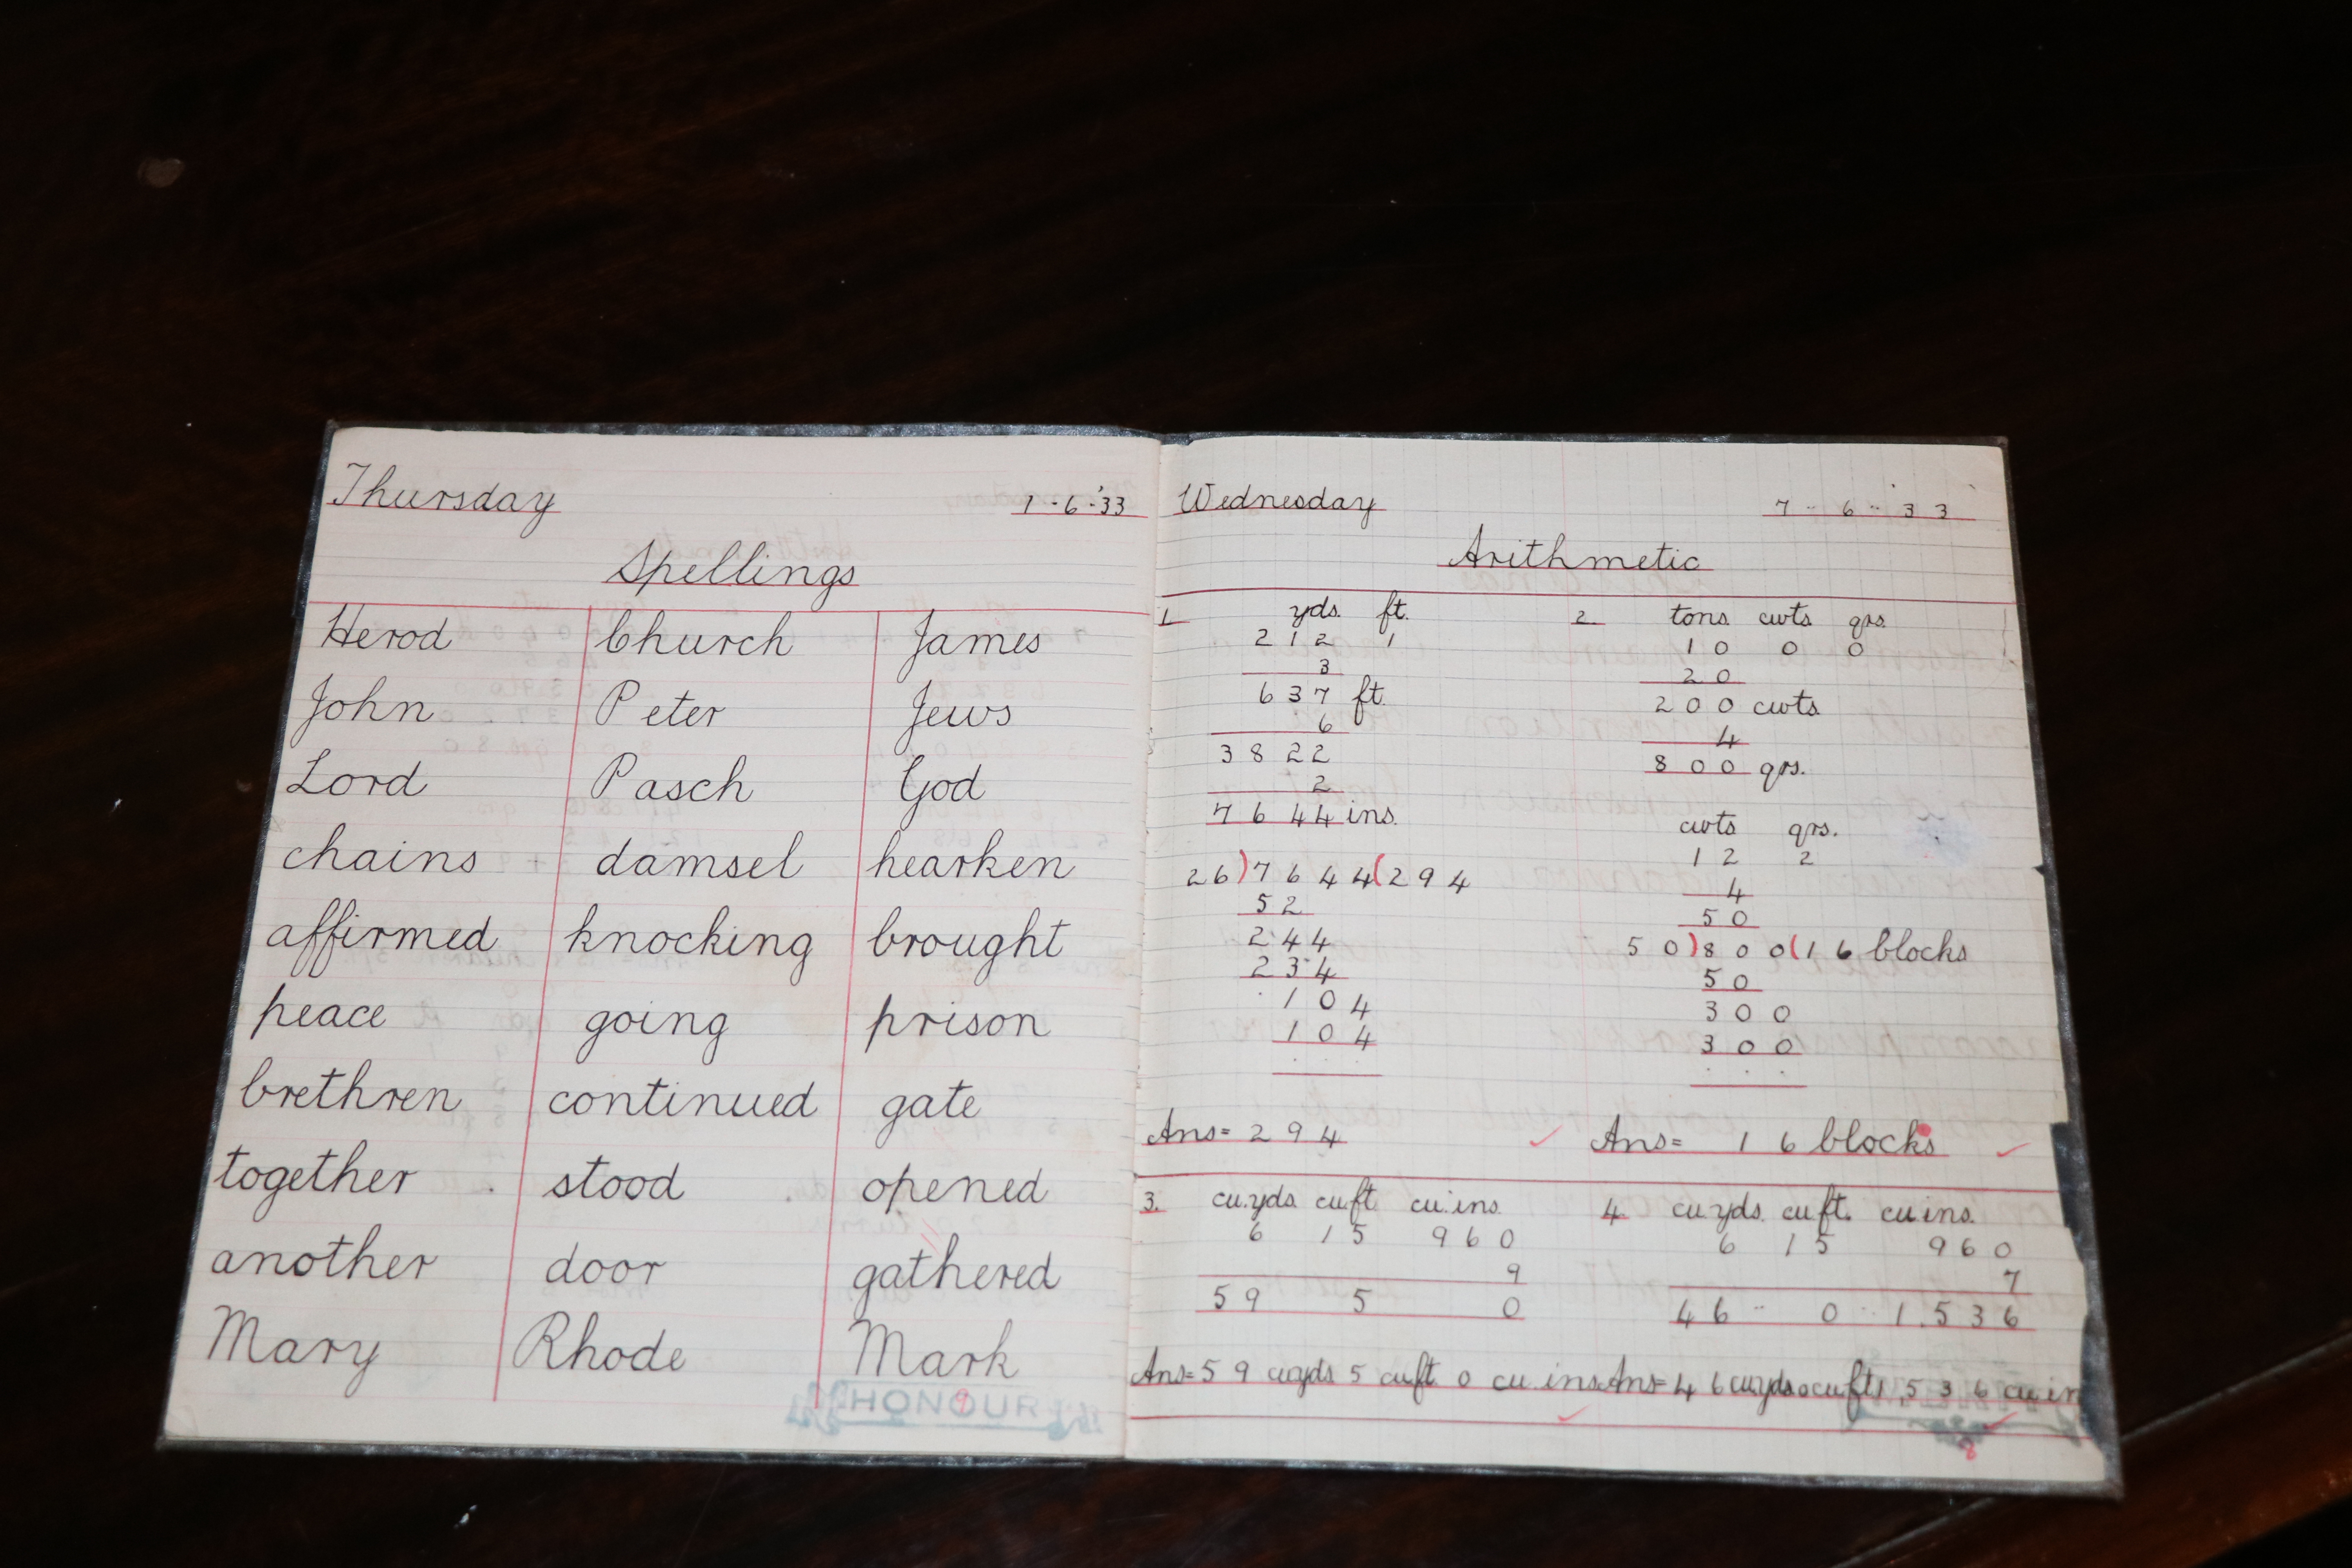 Thursday 1-6-'33
Spellings
Herod Church James
John Peter Jews
Lord Pasch God
chains damsel hearken
affirmed knocking brought
peace going prison
brethren continued gate
together stood opened
another door gathered
Mary Rhode Mark
HONOUR
9
Wednesday 7-6-33
Arithmetic
1. yds. ft.
212 1
3
637 ft.
6
3822
2
7644 ins.
26)7644(294
52
244
234
104
104
Ans= 294
2. tons cwts qrs.
10 0 0
20
200 cwts
4
800 qrs.
cwts qrs.
12 2
4
50
50)800(16 blocks
50
300
300
Ans= 16 blocks
3. cu.yds. cu.ft cu.ins.
6 15 960
9
59 5 0
Ans= 59 cu.yds 5 cu.ft 0 cu.ins.
4. cu.yds. cu.ft. cu.ins.
6 15 960
7
46 0 1,536
Ans= 46 cu.yds 0 cu.ft 1536 cu.in
8